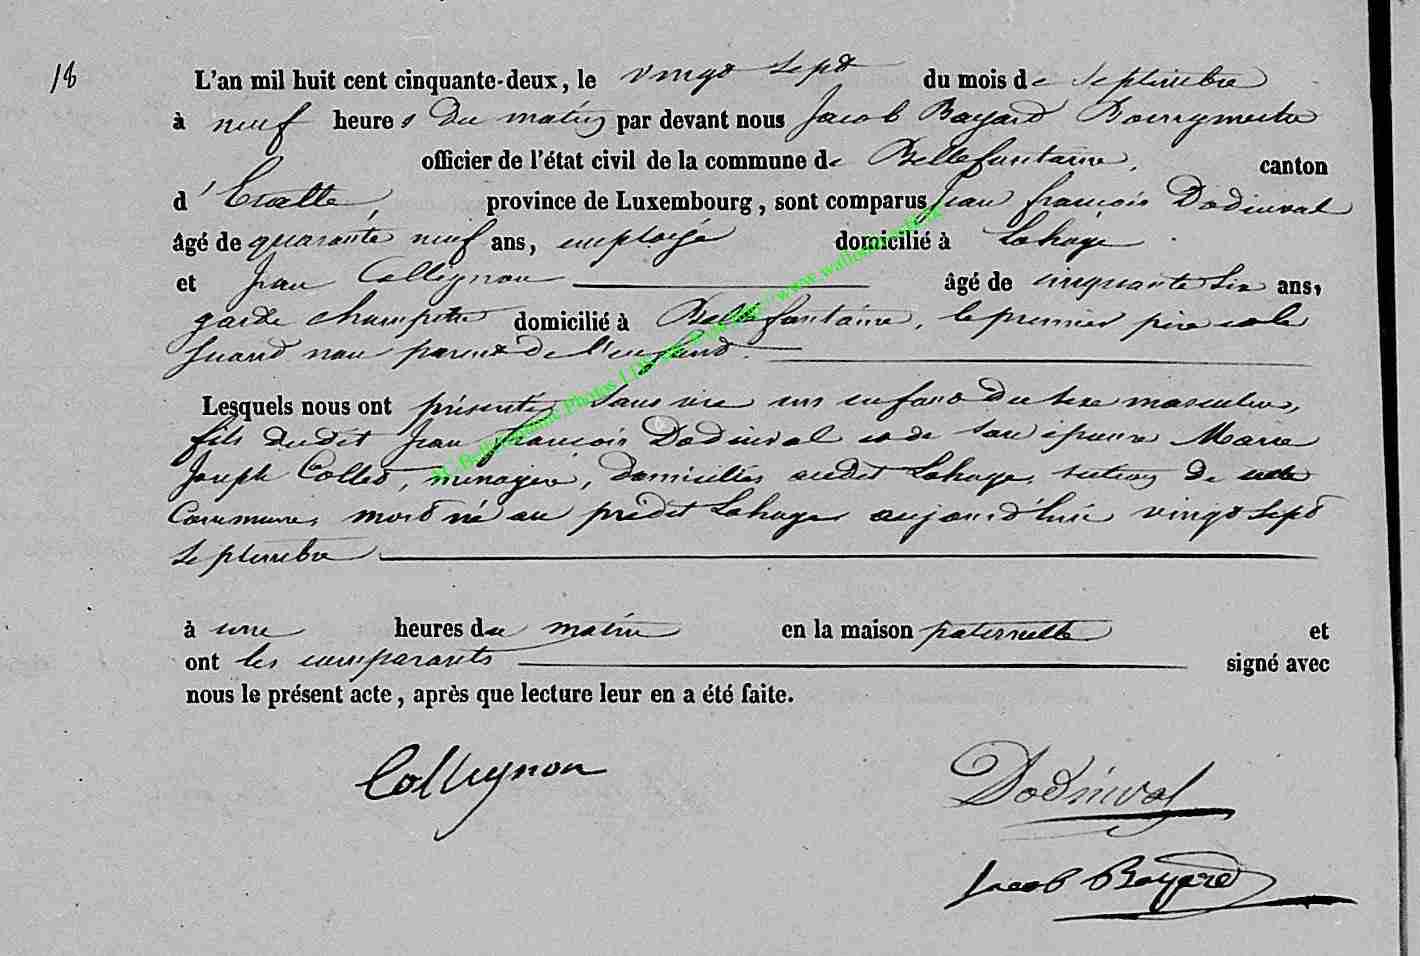 18
L'an mil huit cent cinquante-deux, le vingt sept du mois de Septembre
à neuf heures du matin par devant nous Jacob Bayard Bourgmestre
officier de l'état civil de la commune de Bellefontaine, canton
d'Etalle, province de Luxembourg, sont comparus Jean françois Dodinval
âgé de quarante neuf ans, employé domicilié à Lahage
et Jean Collignon âgé de cinquante six ans,
garde champetre domicilié à Bellefontaine, le premier père et le
second non parent de l'enfant.
Lesquels nous ont présenté sans vie un enfant du sexe masculin,
fils dudit Jean françois Dodinval et de son épouse Marie
Joseph Collet, ménagère, domiciliés audit Lahage, section de cette
Commune, mort né au prédit Lahage aujourd'hui vingt sept
Septembre
à une heures du matin en la maison paternelle et
ont les comparants signé avec
nous le présent acte, après que lecture leur en a été faite.
Collignon
Dodinval
Jacob Bayard